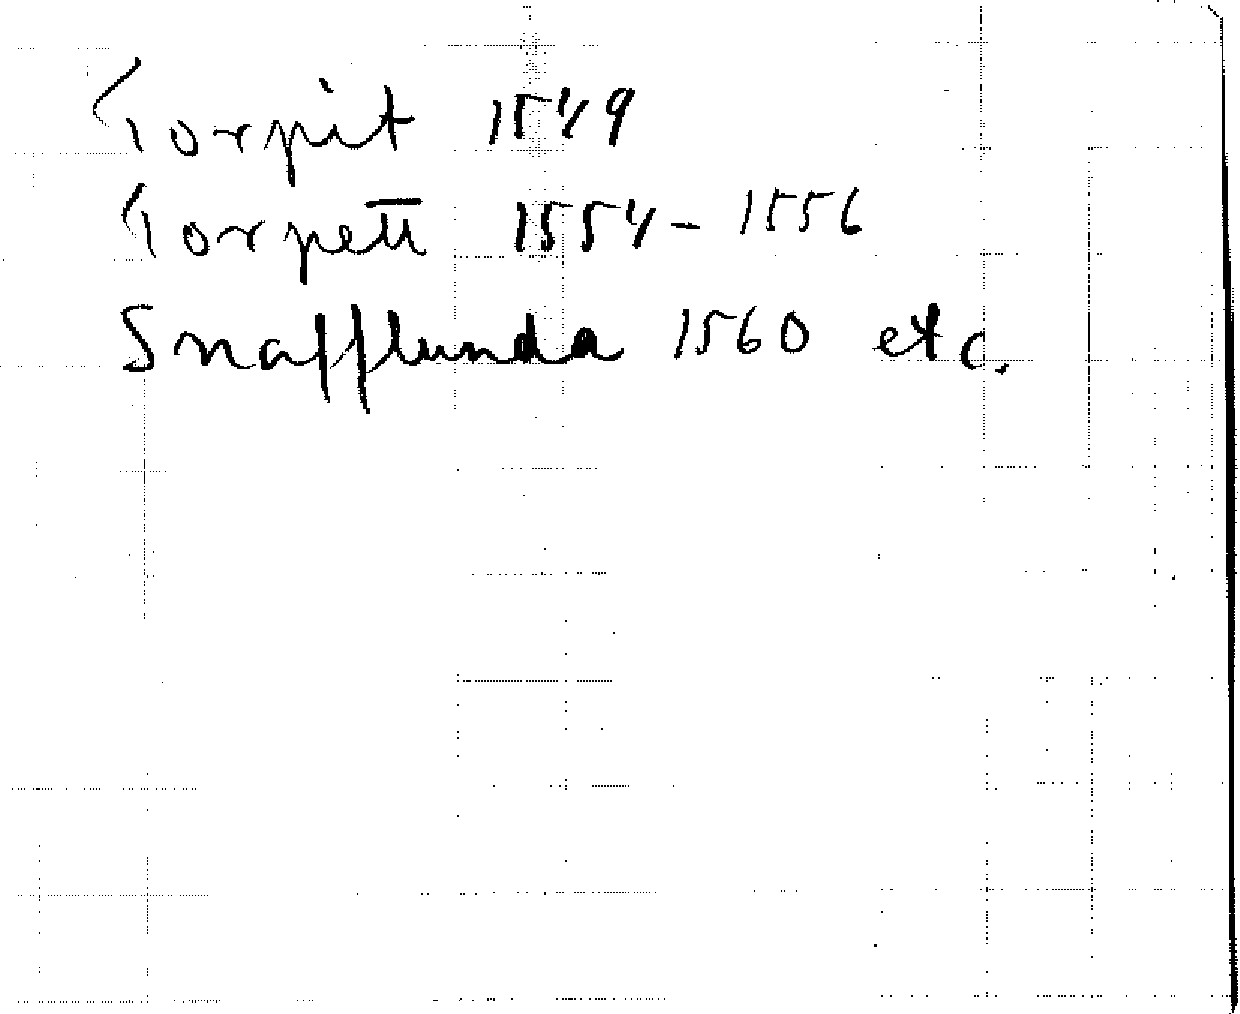 Torpit 1549
Torpett 1554 - 1556
Snafflunda 1560 etc.